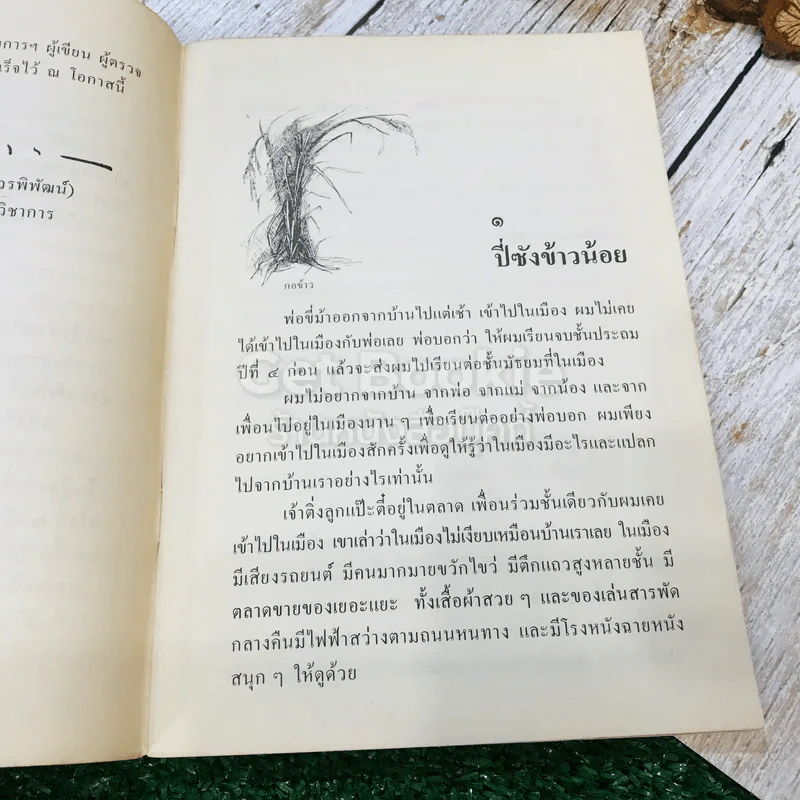 การฯ ผู้เขียน ผู้ตรวจ
ร็จไว้ ณ โอกาสนี้
วรพิพัฒน์)
วิชาการ
กอข้าว
๑
ปี่ซังข้าวน้อย
พ่อขี่ม้าออกจากบ้านไปแต่เช้า เข้าไปในเมือง ผมไม่เคย
ได้เข้าไปในเมืองกับพ่อเลย พ่อบอกว่า ให้ผมเรียนจบชั้นประถม
ปีที่ ๔ ก่อน แล้วจะส่งผมไปเรียนต่อชั้นมัธยมที่ในเมือง
ผมไม่อยากจากบ้าน จากพ่อ จากแม่ จากน้อง และจาก
เพื่อนไปอยู่ในเมืองนาน ๆ เพื่อเรียนต่ออย่างพ่อบอก ผมเพียง
อยากเข้าไปในเมืองสักครั้งเพื่อดูให้รู้ว่าในเมืองมีอะไรและแปลก
ไปจากบ้านเราอย่างไรเท่านั้น
เจ้าติ่งลูกแป๊ะตี๋อยู่ในตลาด เพื่อนร่วมชั้นเดียวกับผมเคย
เข้าไปในเมือง เขาเล่าว่าในเมืองไม่เงียบเหมือนบ้านเราเลย ในเมือง
มีเสียงรถยนต์ มีคนมากมายขวักไขว่ มีตึกแถวสูงหลายชั้น มี
ตลาดขายของเยอะแยะ ทั้งเสื้อผ้าสวย ๆ และของเล่นสารพัด
กลางคืนมีไฟฟ้าสว่างตามถนนหนทาง และมีโรงหนังฉายหนัง
สนุก ๆ ให้ดูด้วย
Get Bookie
ร้านหนังสือเก็ทบุ๊คกี้